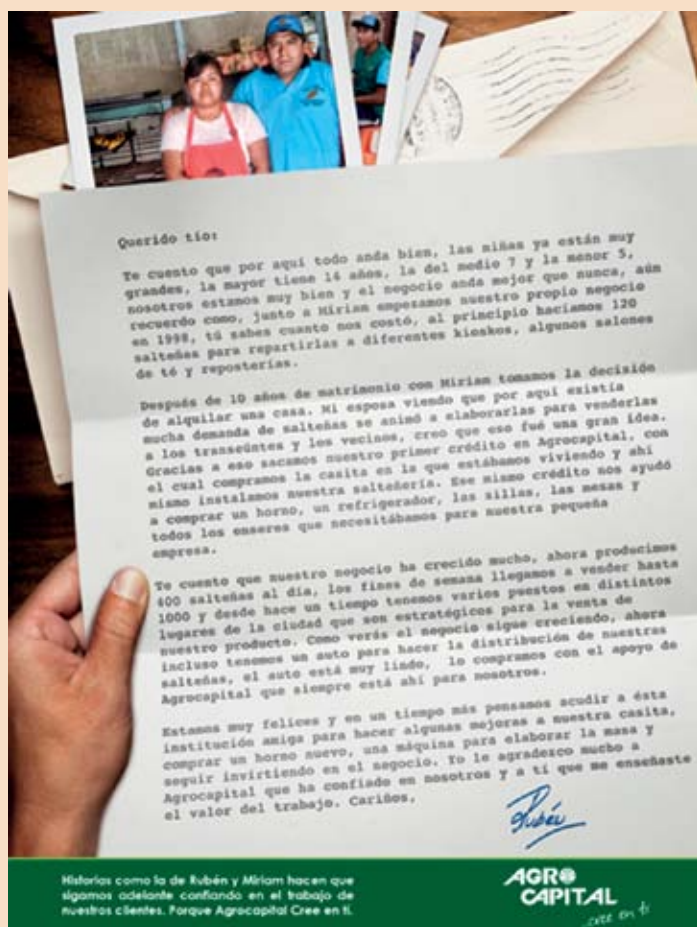 Querido tío:
Te cuento que por aquí todo anda bien, las niñas ya están muy
grandes, la mayor tiene 14 años, la del medio 7 y la menor 5,
nosotros estamos muy bien y el negocio anda mejor que nunca, aún
recuerdo como, junto a Miriam empezamos nuestro propio negocio
en 1998, tú sabes cuanto nos costó, al principio hacíamos 120
salteñas para repartirlas a diferentes kioskos, algunos salones
de té y reposterías.
Después de 10 años de matrimonio con Miriam tomamos la decisión
de alquilar una casa. Mi esposa viendo que por aquí existía
mucha demanda de salteñas se animó a elaborarlas para venderlas
a los transeúntes y los vecinos, creo que eso fué una gran idea.
Gracias a eso sacamos nuestro primer crédito en Agrocapital, con
el cual compramos la casita en la que estábamos viviendo y ahí
mismo instalamos nuestra salteñería. Ese mismo crédito nos ayudó
a comprar un horno, un refrigerador, las sillas, las mesas y
todos los enseres que necesitábamos para nuestra pequeña
empresa.
Te cuento que nuestro negocio ha crecido mucho, ahora producimos
400 salteñas al día, los fines de semana llegamos a vender hasta
1000 y desde hace un tiempo tenemos varios puestos en distintos
lugares de la ciudad que son estratégicos para la venta de
nuestro producto. Como verás el negocio sigue creciendo, ahora
incluso tenemos un auto para hacer la distribución de nuestras
salteñas, el auto está muy lindo, lo compramos con el apoyo de
Agrocapital que siempre está ahí para nosotros.
Estamos muy felices y en un tiempo más pensamos acudir a ésta
institución amiga para hacer algunas mejoras a nuestra casita,
comprar un horno nuevo, una máquina para elaborar la masa y
seguir invirtiendo en el negocio. Yo le agradezco mucho a
Agrocapital que ha confiado en nosotros y a tí que me enseñaste
el valor del trabajo. Cariños,
Rubén
Historias como la de Rubén y Miriam hacen que
sigamos adelante confiando en el trabajo de
nuestros clientes. Porque Agrocapital Cree en ti.
AGRO
CAPITAL
cree en ti